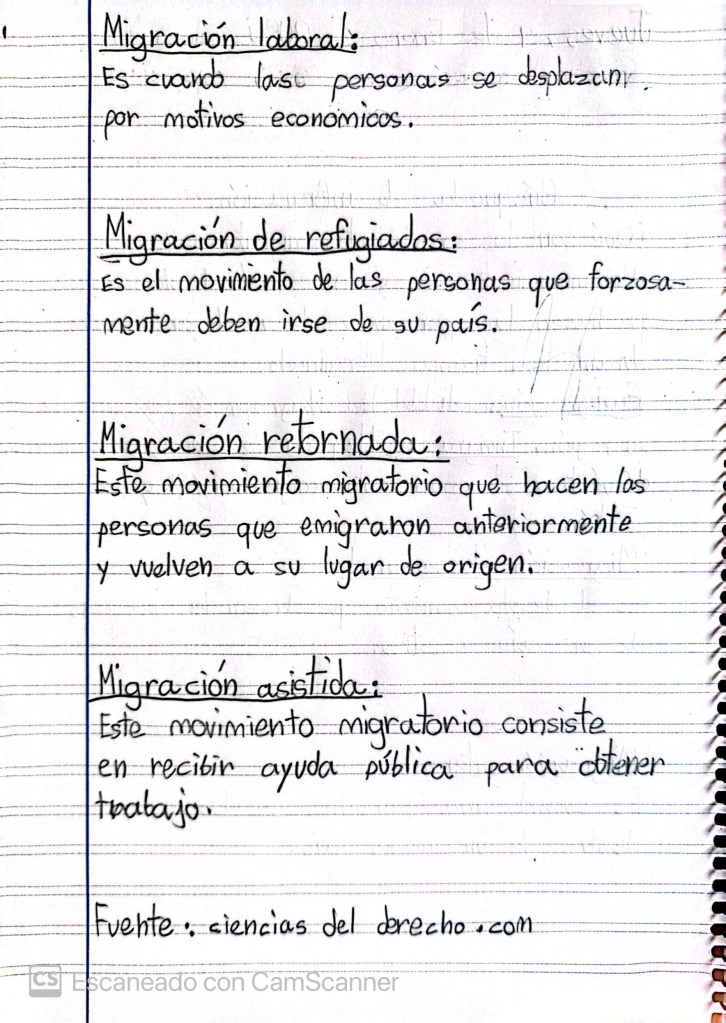 Migración laboral:
Es cuando las personas se desplazan
por motivos económicos.
Migración de refugiados:
Es el movimiento de las personas que forzosa-
mente deben irse de su país.
Migración retornada:
Este movimiento migratorio que hacen las
personas que emigraron anteriormente
y vuelven a su lugar de origen.
Migración asistida:
Este movimiento migratorio consiste
en recibir ayuda pública para obtener
trabajo.
Fuente: ciencias del derecho.com
CS Escaneado con CamScanner